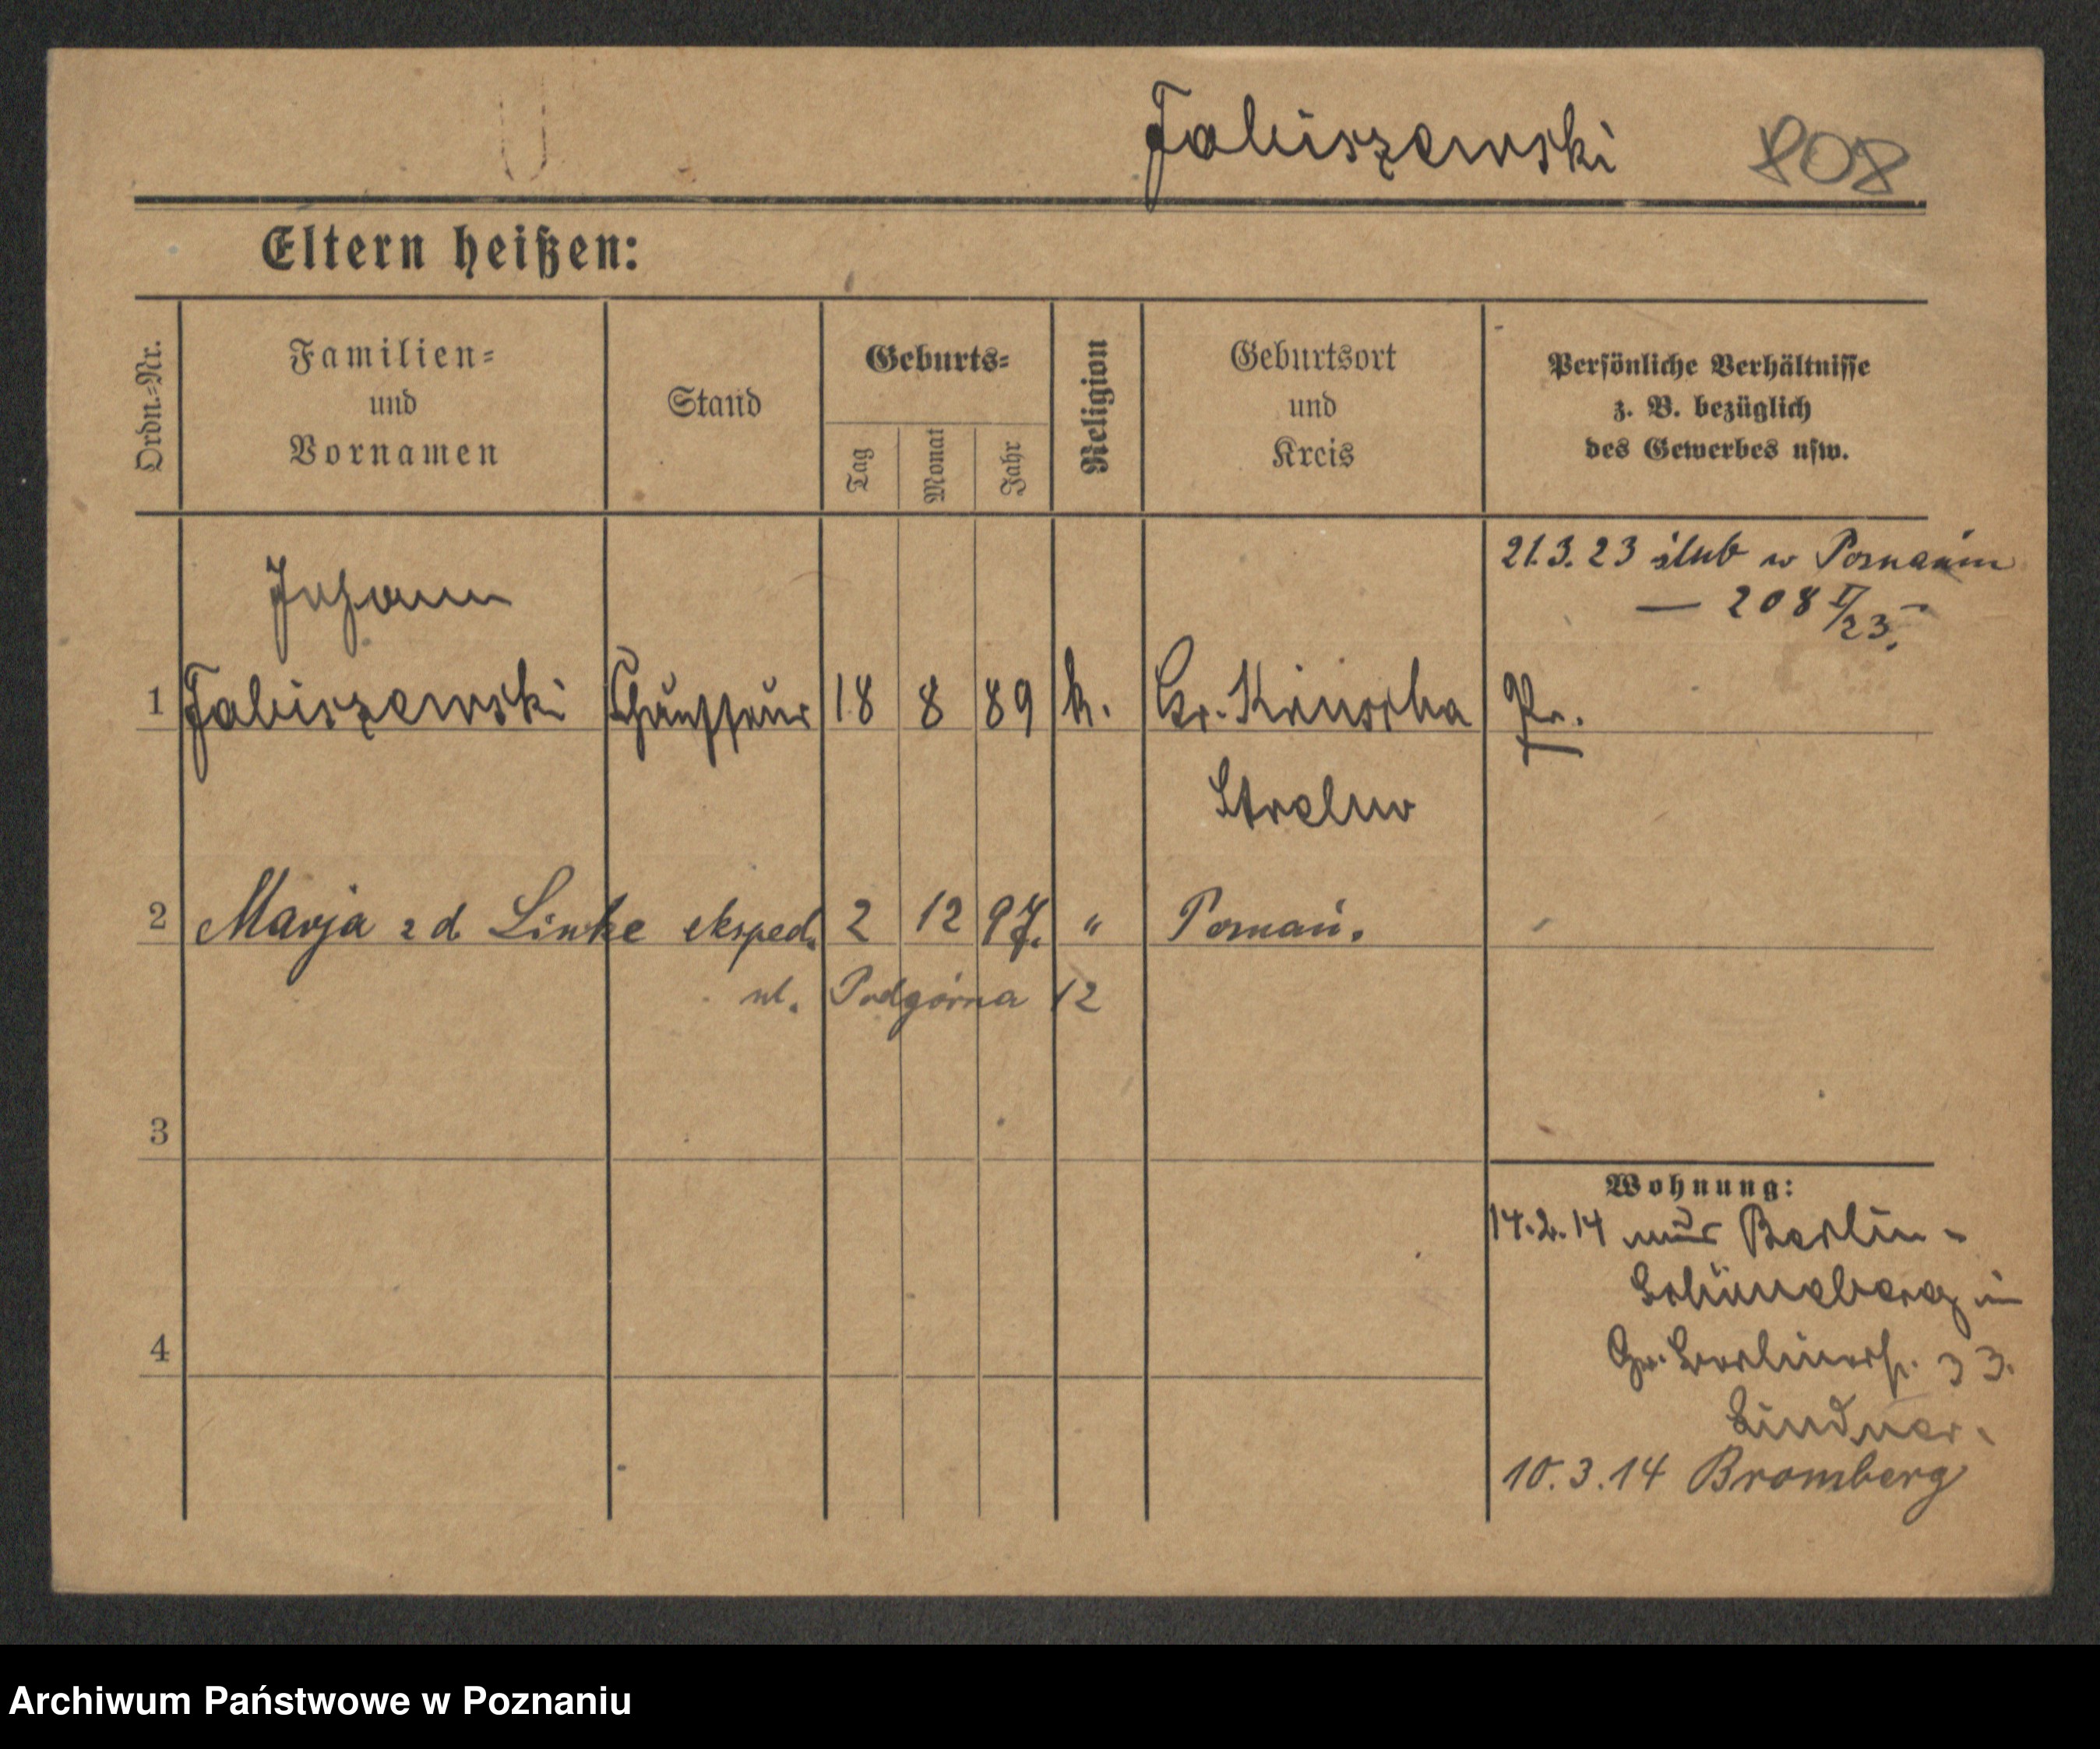 Fabiszewski 808
Eltern heißen:
Ordn.=Nr.
Familien=
und
Vornamen
Stand
Geburts=
Tag
Monat
Jahr
Religion
Geburtsort
und
Kreis
Persönliche Verhältnisse
z. B. bezüglich
des Gewerbes usw.
21.3.23 ślub w Poznaniu
— 208 I/23. –
Johann
1 Fabiszewski Chauffeur 18 8 89 k. Gr. Pr.
Strelno
2 Marja z d. Linke eksped. 2 12 97. " Poznań.
ul. Podgórna 12
3
Wohnung:
14.2.14 aus Berlin-
Schöneberg in
Gr. Berlinerstr. 33.
Lindner.
4
10.3.14 Bromberg
Archiwum Państwowe w Poznaniu